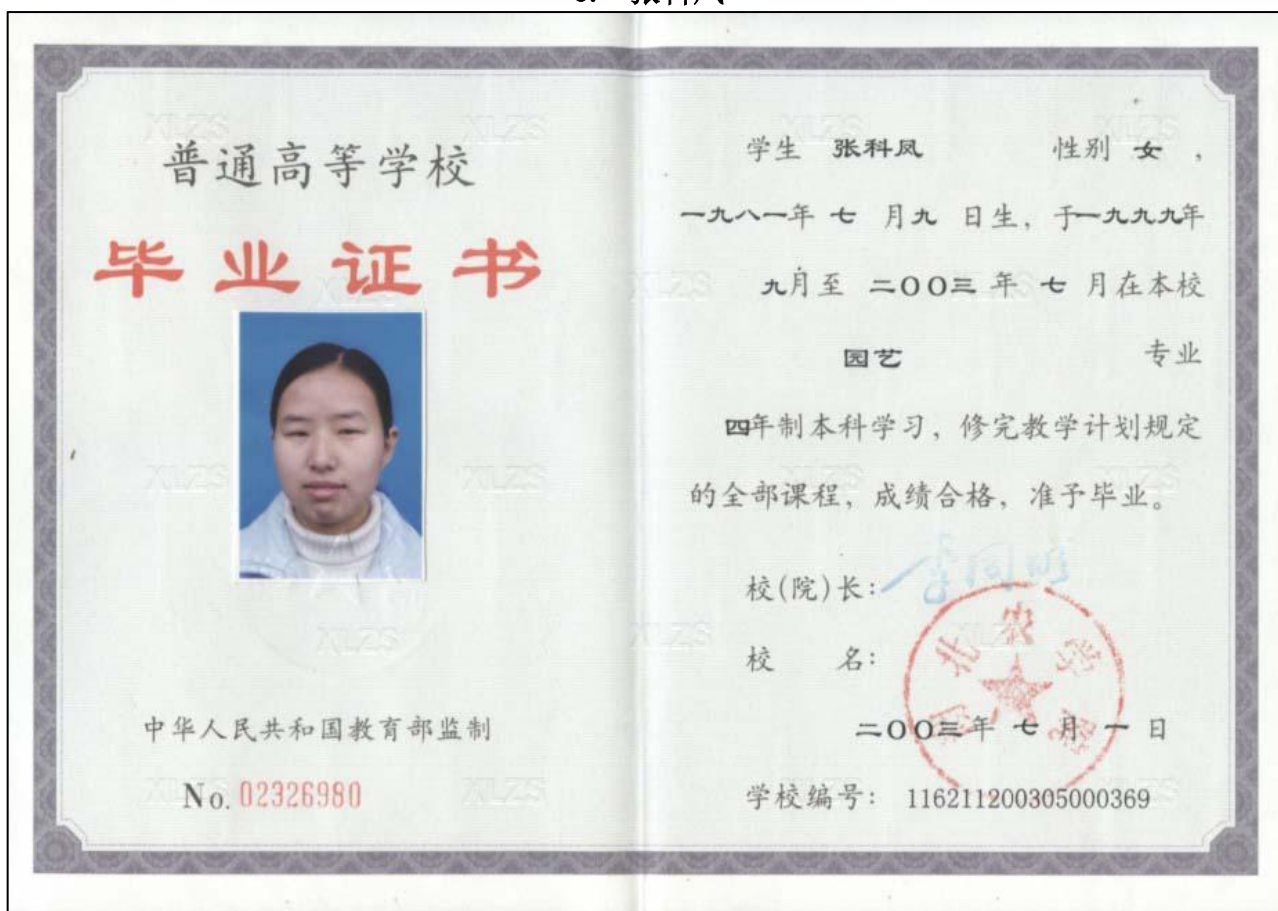 普通高等学校
毕业证书
中华人民共和国教育部监制
No. 02326980
学生 张科凤 性别 女 ,
一九八一年 七 月九 日生, 于一九九九年
九月至 二〇〇三 年 七 月在本校
园艺 专业
四年制本科学习, 修完教学计划规定
的全部课程, 成绩合格, 准予毕业。
校(院)长:
校 名:
北农学院
二〇〇三年 七 月 一 日
学校编号: 116211200305000369
XLZS